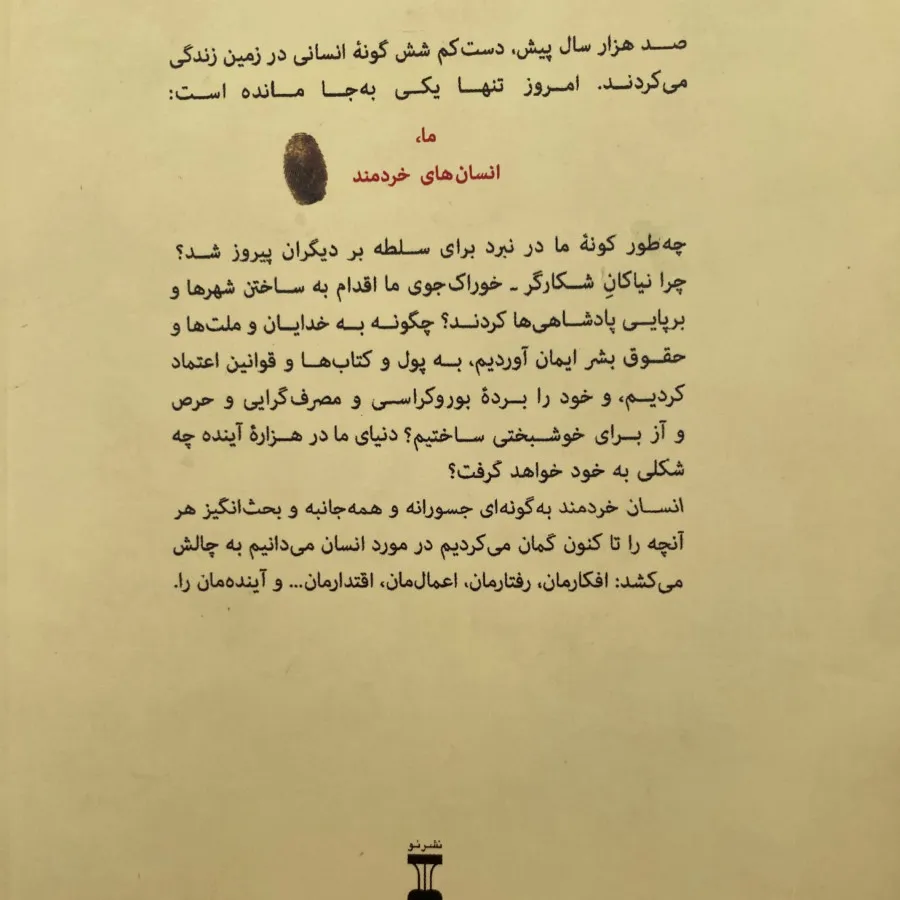 صد هزار سال پیش، دست‌کم شش گونهٔ انسانی در زمین زندگی
می‌کردند. امروز تنها یکی به‌جا مانده است:
ما،
انسان‌های خردمند
چه‌طور کونهٔ ما در نبرد برای سلطه بر دیگران پیروز شد؟
چرا نیاکانِ شکارگر ـ خوراک‌جوی ما اقدام به ساختن شهرها و
برپایی پادشاهی‌ها کردند؟ چگونه به خدایان و ملت‌ها و
حقوق بشر ایمان آوردیم، به پول و کتاب‌ها و قوانین اعتماد
کردیم، و خود را بردهٔ بوروکراسی و مصرف‌گرایی و حرص
و آز برای خوشبختی ساختیم؟ دنیای ما در هزارهٔ آینده چه
شکلی به خود خواهد گرفت؟
انسان خردمند به‌گونه‌ای جسورانه و همه‌جانبه و بحث‌انگیز هر
آنچه را تا کنون گمان می‌کردیم در مورد انسان می‌دانیم به چالش
می‌کشد: افکارمان، رفتارمان، اعمال‌مان، اقتدارمان... و آینده‌مان را.
نشرنو